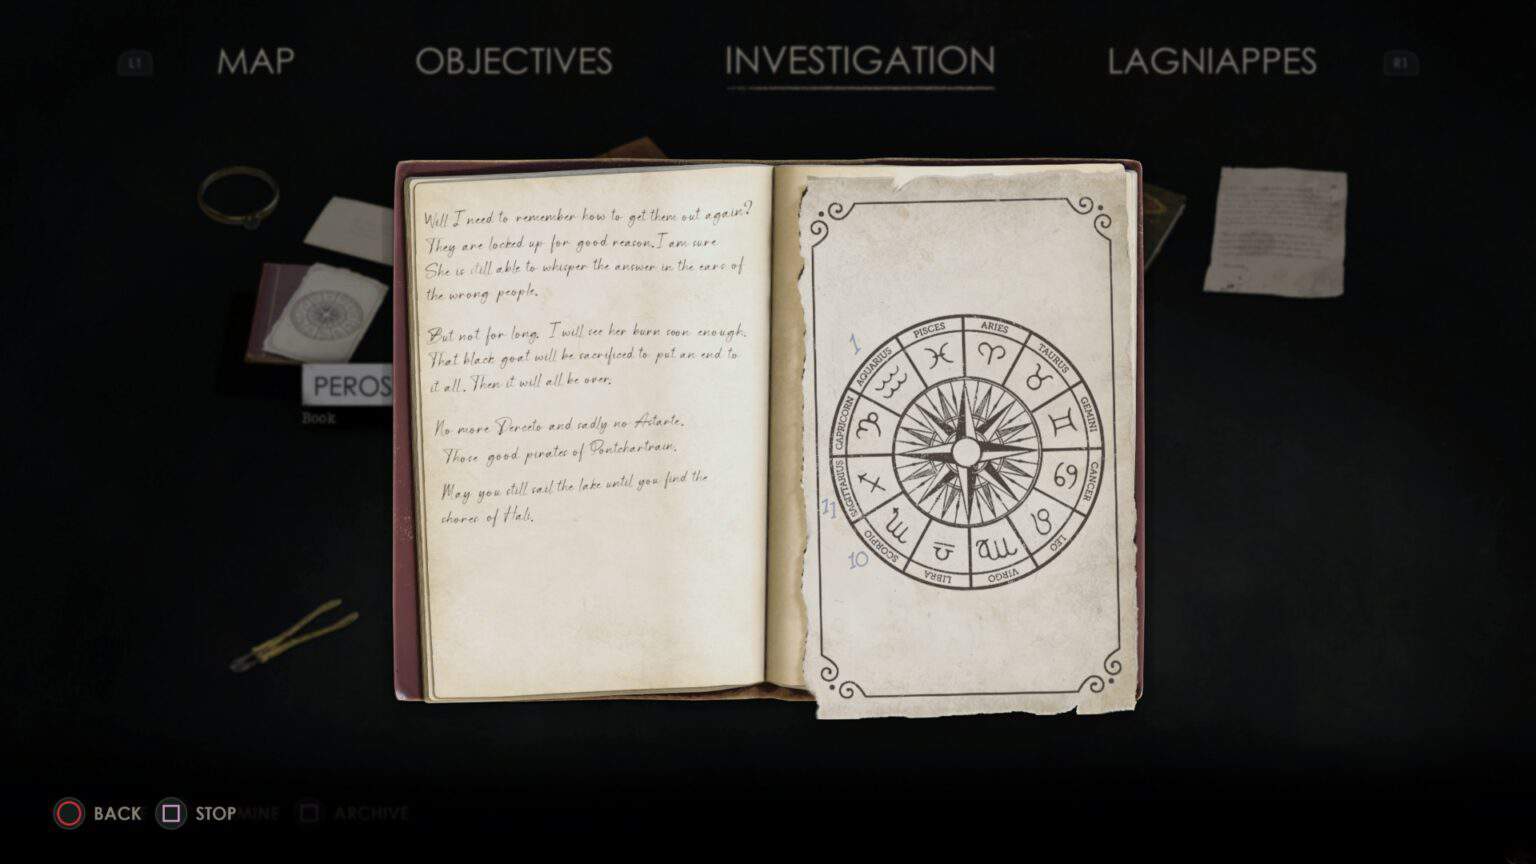 L1
MAP
OBJECTIVES
INVESTIGATION
LAGNIAPPES
R1
Well I need to remember how to get them out again?
They are locked up for good reason. I am sure
She is still able to whisper the answer in the ears of
the wrong people.
But not for long. I will see her burn soon enough.
That black goat will be sacrificed to put an end to
it all. Then it will all be over.
No more Derceto and sadly no Astarte.
Those good pirates of Pontchartrain.
May you still sail the lake until you find the
shores of Hali.
PEROS
Book
1
11
10
PISCES
ARIES
TAURUS
GEMINI
CANCER
LEO
VIRGO
LIBRA
SCORPIO
SAGITTARIUS
CAPRICORN
AQUARIUS
BACK
STOP
MINE
ARCHIVE